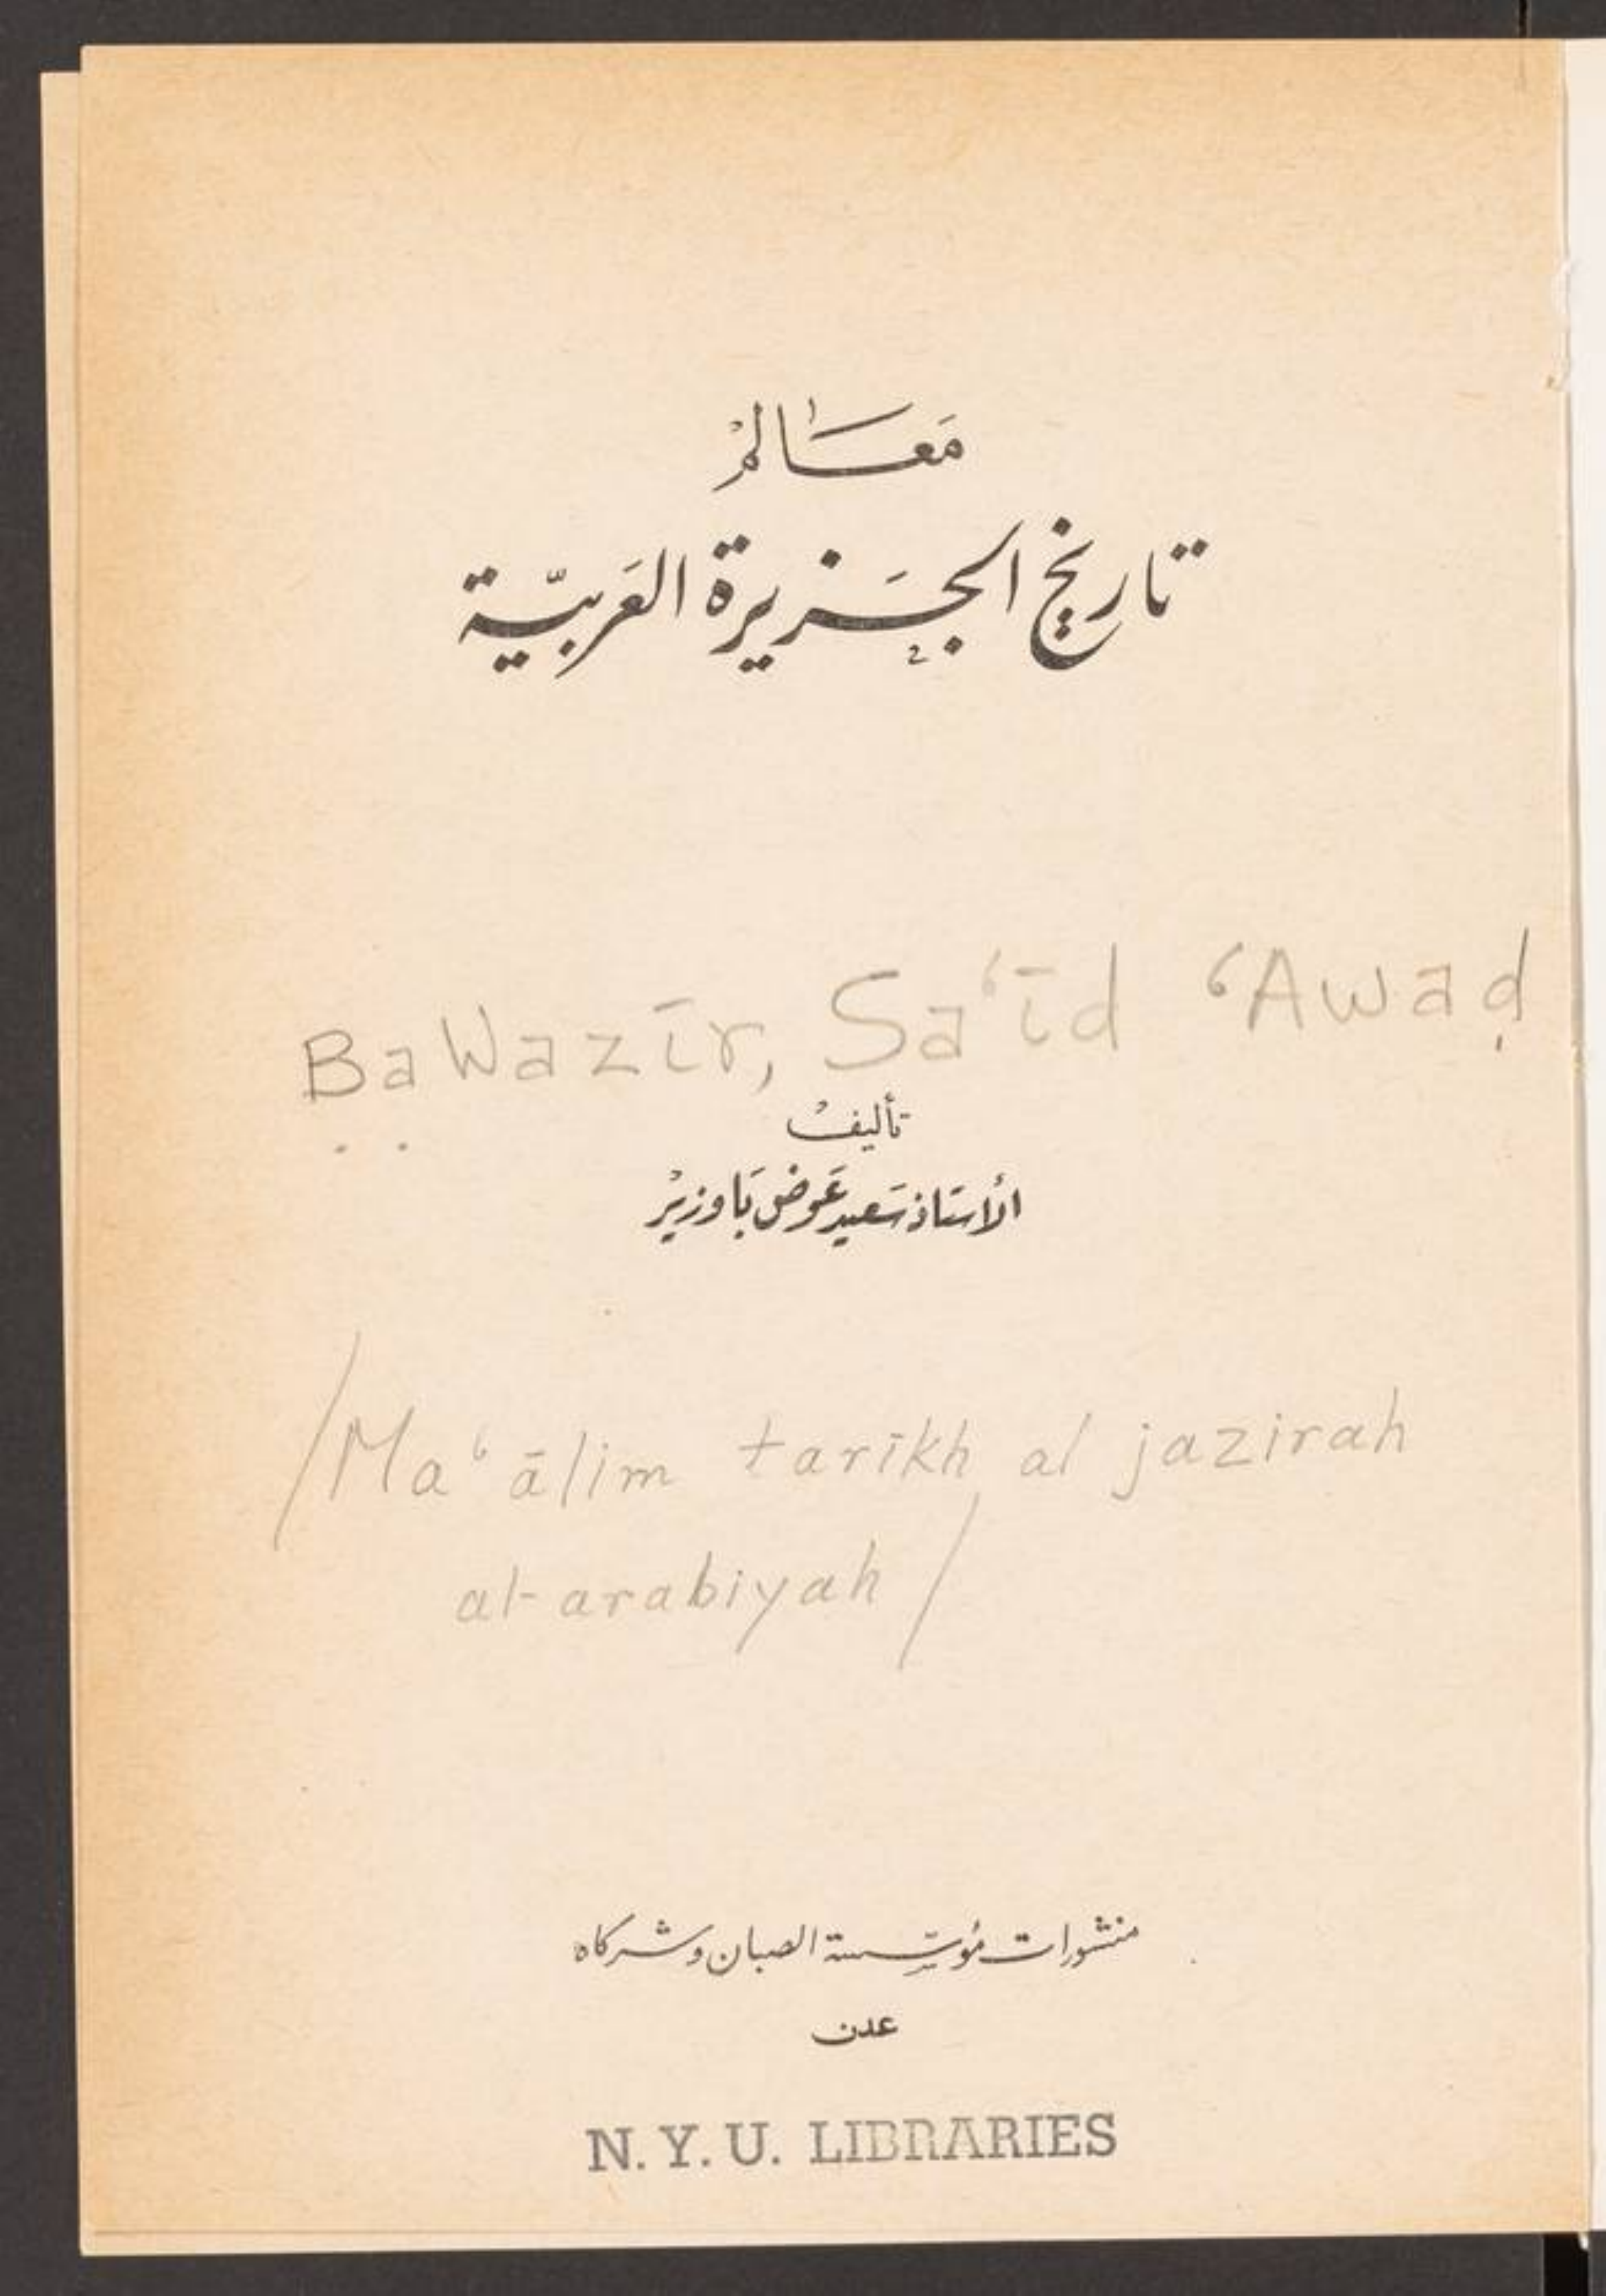 معالم
تاريخ الجزيرة العربيّة
BaWazīr, Sa‘īd ‘Awaḍ
تأليف
الأستاذ سعيد عوض باوزير
/Ma‘ālim tarīkh al jazirah
al-arabiyah/
منشورات مؤسّسة الصبان وشركاه
عدن
N. Y. U. LIBRARIES